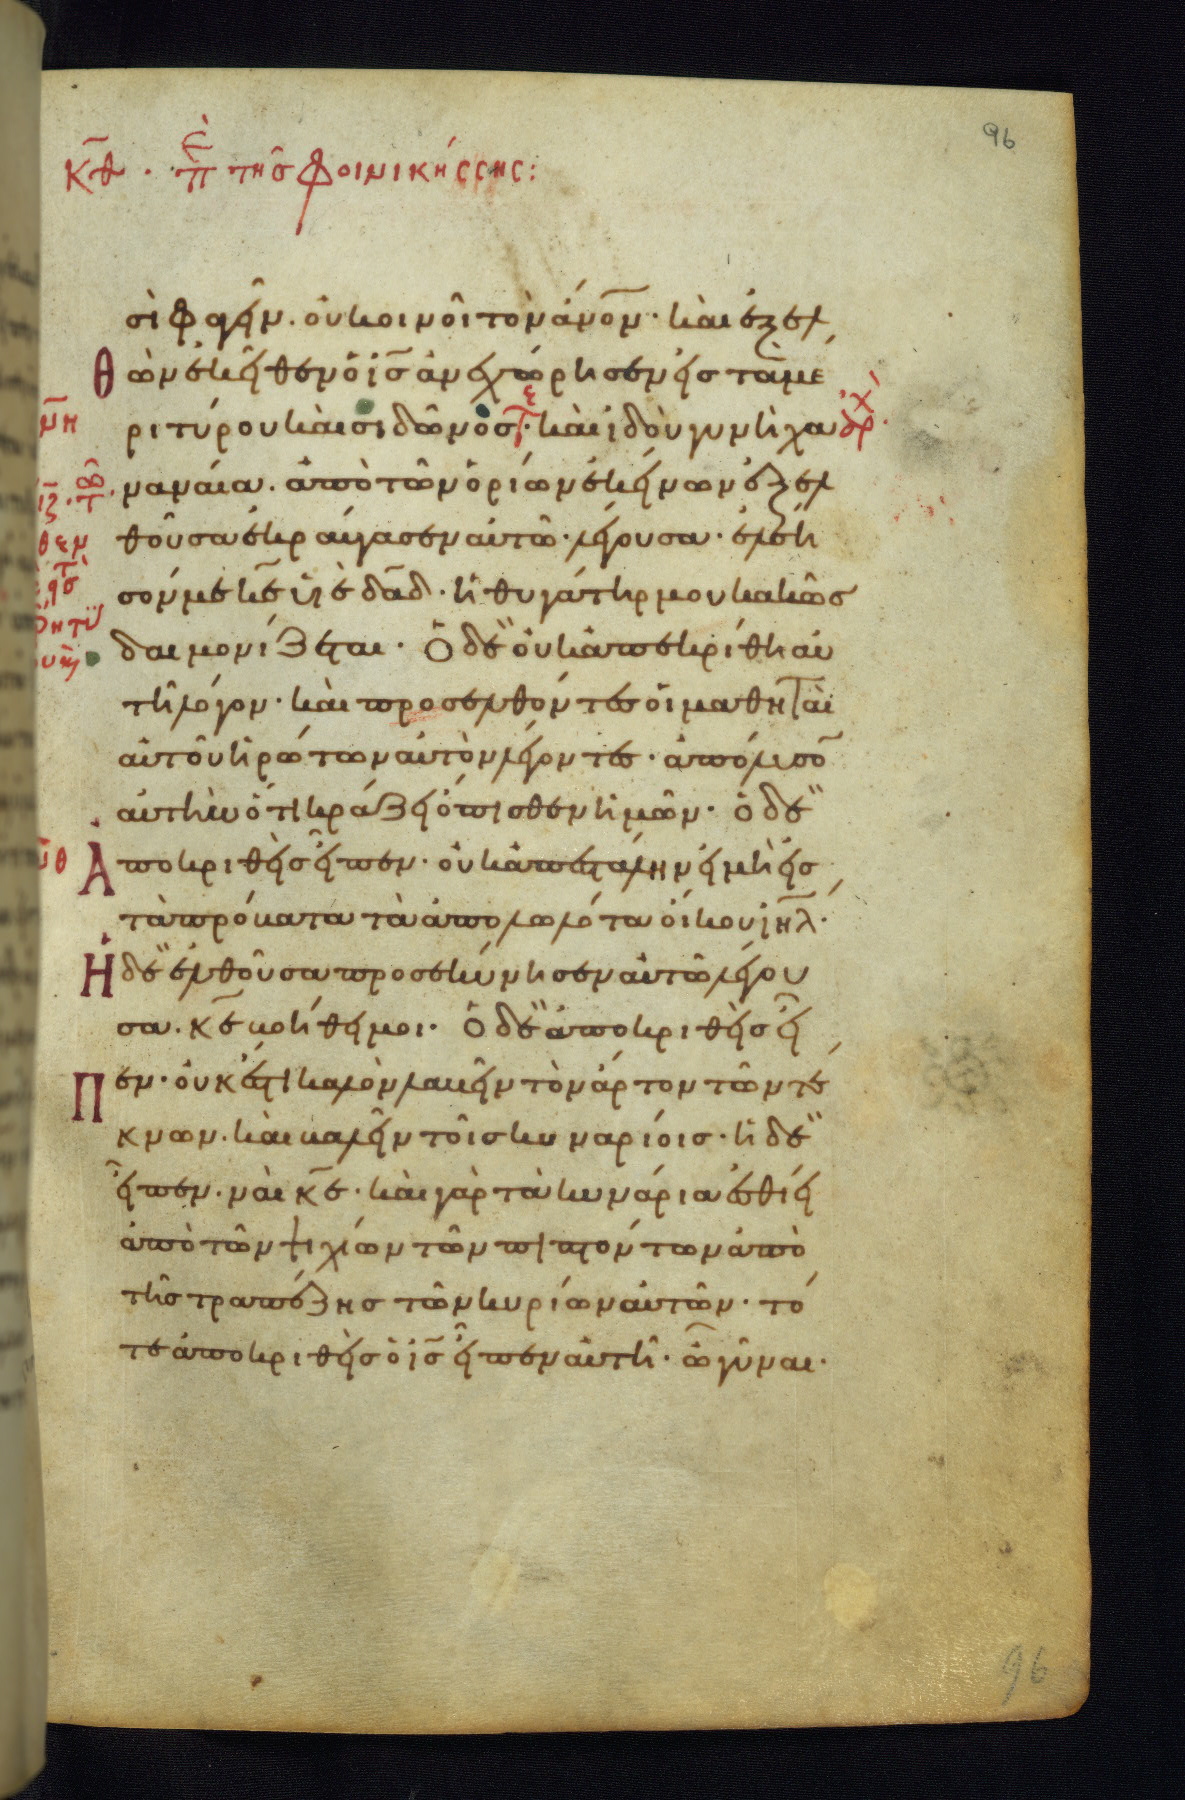 96
κθ · ἐπ τῆς φοινικήσσης:
σὶ φαγεῖν. οὐ κοινοῖ τὸν ἄνον· καὶ ἐξελ
θὼν ἐκεῖθεν ὁ ις ἀνεχώρησεν εἰς τὰ μέ
ρι τύρου καὶ σιδῶνος· τε καὶ ἰδοὺ γυνὴ χα ἀρχ
ναναία. ἀπὸ τῶν ὁρίων ἐκείνων ἐξελ
θοῦσα ἐκραύγασεν αὐτῶ· λέγουσα· ἐλεή
σόν με κε υἱὲ δαδ· ἡ θυγάτηρ μου κακῶς
δαιμονίζεται· Ὁ δὲ οὐκ ἀπεκρίθη αὐ
τῆ λόγον· καὶ προσελθόντες οἱ μαθηταὶ
αὐτοῦ ἠρώτων αὐτὸν λέγοντες· ἀπόλυσον
αὐτὴν ὅτι κράζει ὄπισθεν ἡμῶν· ὁ δὲ
Ἀποκριθεὶς εἶπεν· οὐκ ἀπεστάλην εἰ μὴ εἰς
τὰ πρόβατα τὰ ἀπολωλότα οἴκου ιηλ·
Ἡ δὲ ἐλθοῦσα προσεκύνησεν αὐτῶ λέγου
σα. κε βοήθει μοι· Ὁ δὲ ἀποκριθεὶς εἶ
Πεν· οὐκ ἔστι καλὸν λαβεῖν τὸν ἄρτον τῶν τέ
κνων. καὶ βαλεῖν τοῖς κυναρίοις· ἡ δὲ
εἶπεν. ναὶ κε· καὶ γὰρ τὰ κυνάρια ἐσθίει
ἀπὸ τῶν ψιχίων τῶν πιπτόντων ἀπὸ
τῆς τραπέζης τῶν κυρίων αὐτῶν· τό
τε ἀποκριθεὶς ὁ ις εἶπεν αὐτῆ· ὦ γύναι·
96